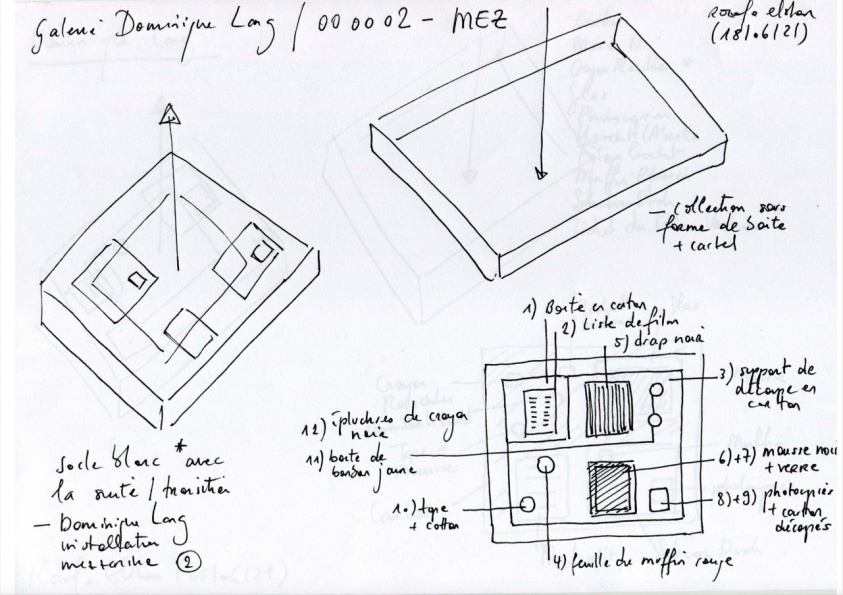 Galerie Dominique Lang / 00 00 02 - MEZ
(18/06/21)
— collection sous
forme de boite
+ cartel
1) Boite en carton
2) Liste de film
5) drap noir
3) support de
découpe en
carton
12) épluchures de crayon
noir
11) boite de
bonbon jaune
6)+7) mousse noire
+ verre
10) type
+ cotton
8)+9) photocopiés
+ carton
découpés
4) feuille de muffin rouge
socle blanc * avec
la
— Dominique Lang
installation
mezzanine 2